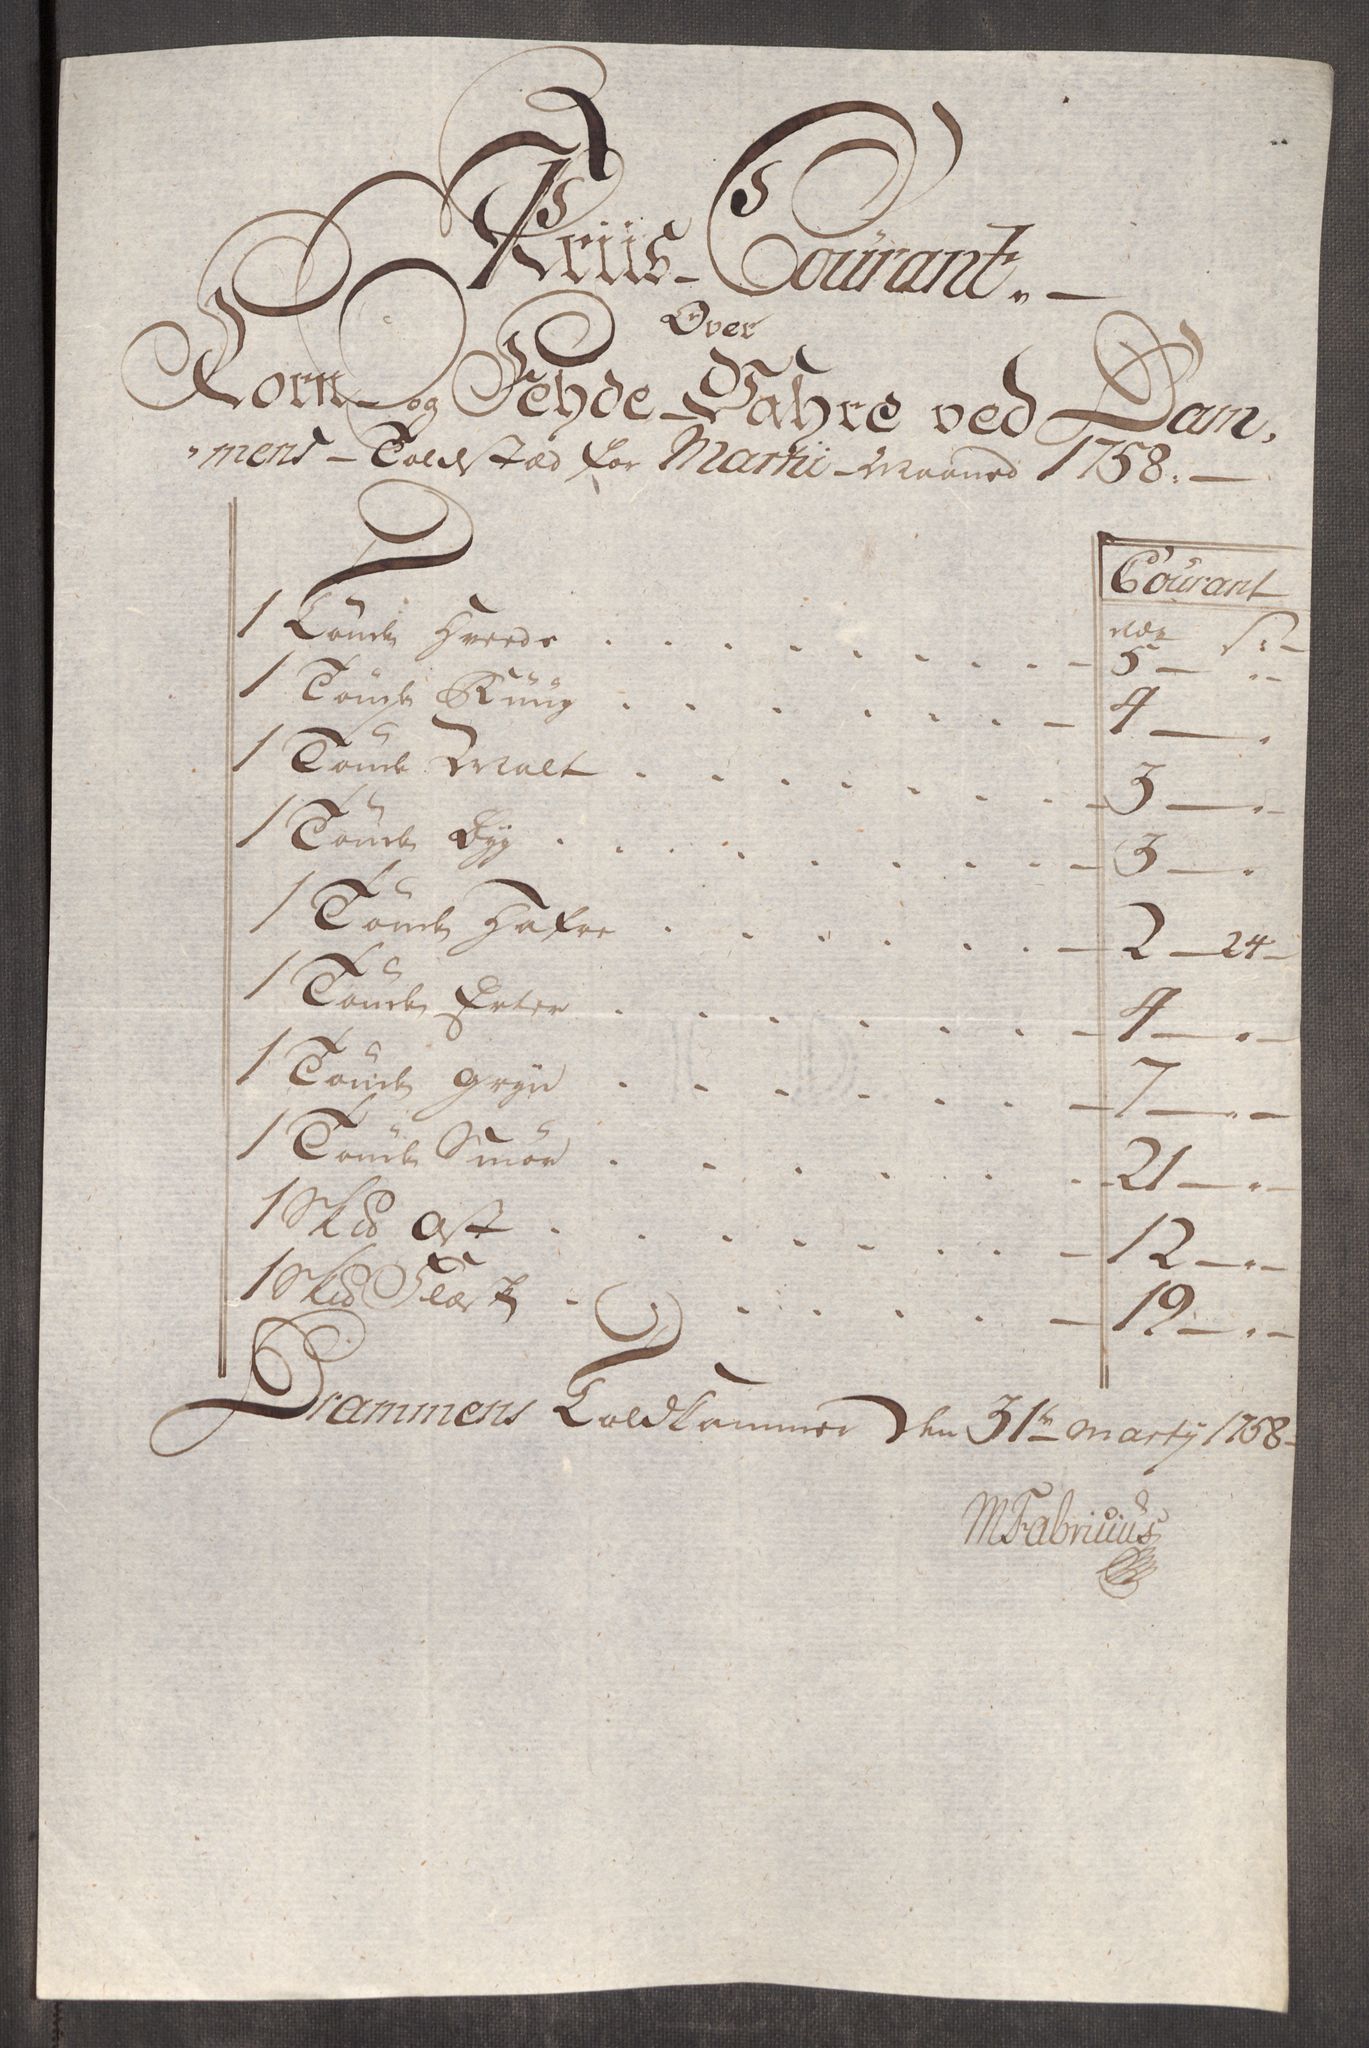 Priis-Courant.
Over
Korn- og Fehde-Vahre ved Dram,
mens Toldstæd for Martii Maaned 1758.
Courant
1 Tönde Hvede . . . . . . . . . rdr 5 — " s
1 Tönde Rüug . . . . . . . 4 — "
1 Tönde Malt . . . . . . . 3 — "
1 Tönde Byg . . . . . . . . 3 — "
1 Tönde Hafre . . . . . . 2 — 24
1 Tönde Erter . . . . . . . 4 — "
1 Tönde Gryn . . . . . . . 7 — "
1 Tönde Smör . . . . . . . 21 — "
1 Sk℔ Ost . . . . . . . 12 — "
1 Sk℔ Flæsk . . . . . 19 — "
Drammens Toldkammer den 31te Martij 1758
MFabricius